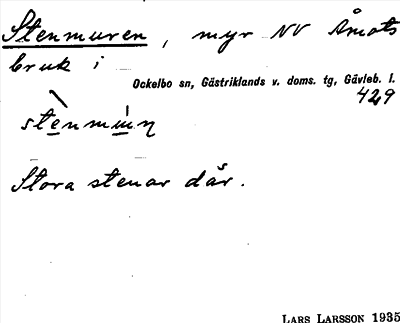 Stenmuren, myr NV Åmots
bruk i
Ockelbo sn, Gästriklands v. doms. tg, Gävleb. l.
429
Stora stenar där.
LARS LARSSON 1935